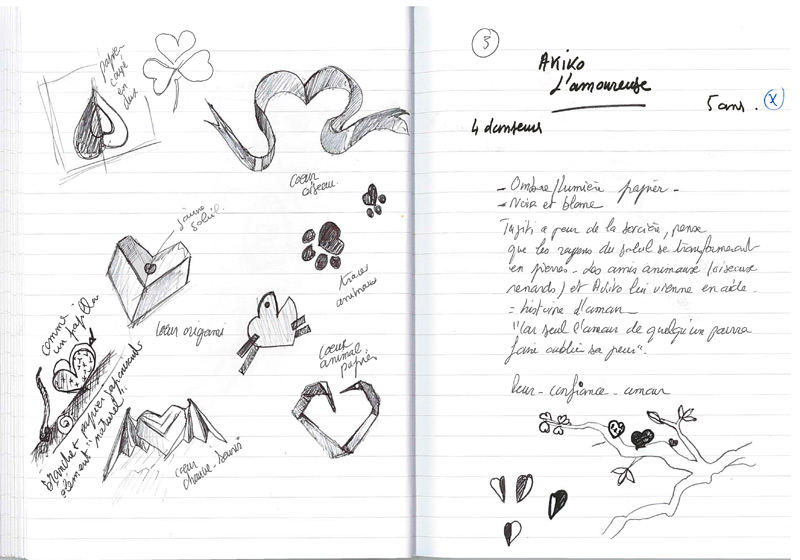 papier
cayé
en
deux
coeur
oiseau.
jaune
soleil.
traces
animaux
coeur origami
comme
un papillon
coeur
animal.
papier
branche + papier
élément "naturel"
coeur
chauve-souris
3
AKiKo
L'amoureuse
5 ans. X
4 danseurs
- Ombre/lumière papier -
- Noir et blanc
a peur de la sorcière, pense
que les rayons du soleil se transforment
en pierres - des amis animaux (oiseaux
renards) et Akiko lui vienne en aide.
= histoire d'amour
"Car seul l'amour de quelqu'un pourra
faire oublier sa peur".
Peur - confiance - amour